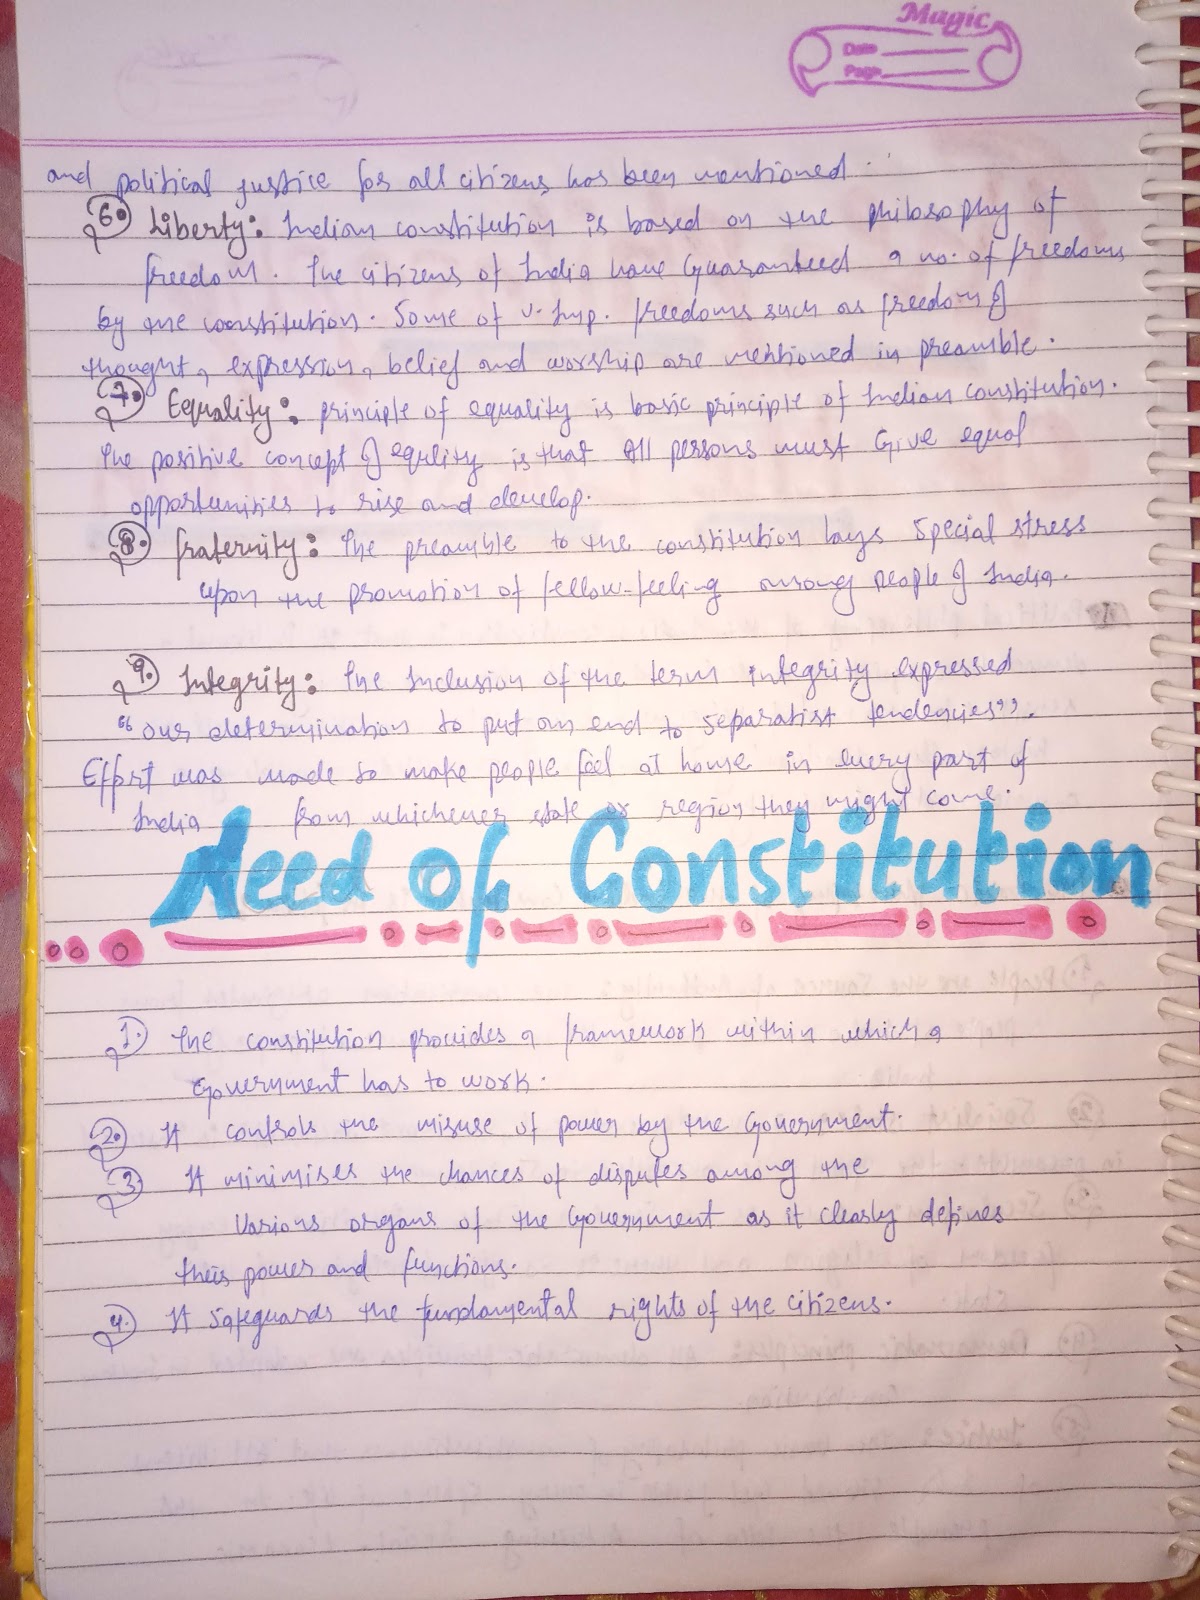 Magic
Date
Page
and political justice for all citizens has been mentioned.
6. Liberty: Indian constitution is based on the philosophy of
freedom. The citizens of India have Guaranteed a no. of freedoms
by the constitution. Some of v. Imp. freedoms such as freedom of
thought, expression, belief and worship are mentioned in preamble.
7. Equality: principle of equality is basic principle of Indian constitution.
The positive concept of equlity is that All persons must Give equal
opportunities to rise and develop.
8. fraternity: The preamble to the constitution lays Special stress
upon the promotion of fellow-feeling among people of India.
9. Integrity: The Inclusion of the term integrity expressed
"our determination to put an end to separatist tendencies".
Effort was made to make people feel at home in every part of
India from whichever state or region they might come.
Need of Constitution
1. The constitution provides a framework within which a
Government has to work.
2. It controls the misuse of power by the Government.
3 It minimises the chances of disputes among the
Various organs of the Government as it clearly defines
their power and functions.
4. It Safeguards the fundamental rights of the citizens.